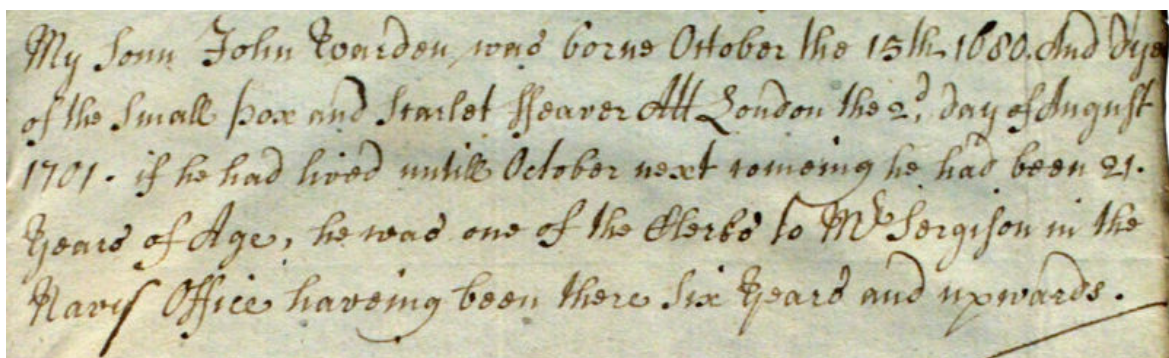 My Sonn John Evarden, was borne October the 15th 1680. And dyed
of the Small Pox and Scarlet ffeaver Att London the 2d, day of August
1701. if he had lived untill October next comeing he had been 21.
Years of Age, he was one of the Clerks to Mr Sergison in the
Navy Office haveing been there Six Years and upwards.